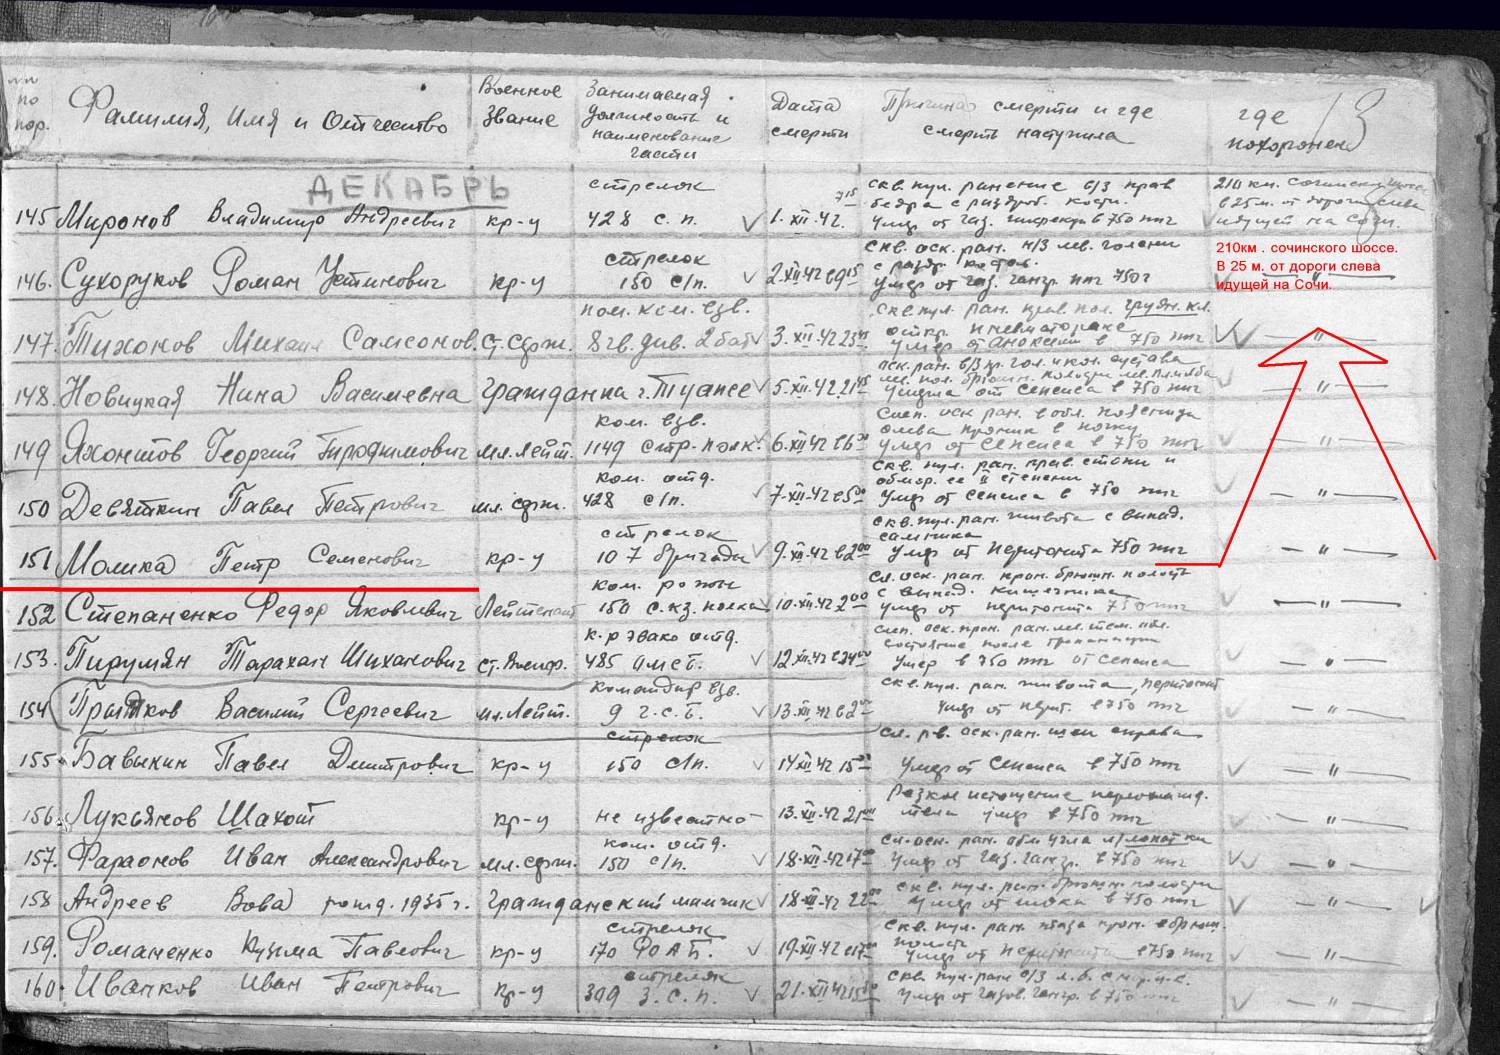 пор. Фамилия, Имя и Отчество Военное Звание Занимаемая должность и наименование части Дата смерти Причина смерти и где смерть наступила где похоронен 13
ДЕКАБРЬ
145 Миронов Владимир Андреевич кр-ц стрелок 428 с.п. 1.XII.42. скв. пул. ранение в/3 прав бедра с раздроб. кости. Умер от газ. в 750 ппг 210 км. Сочинск. шоссе в 25 м. от дороги слева идущей на Сочи.
210км . сочинского шоссе.
В 25 м. от дороги слева
идущей на Сочи.
146. Сухоруков Роман Устинович кр-ц стрелок 150 с/п. 2.XII.42 скв. оск. ран. н/3 лев. голени с раздр. костей. умер от газ. гангр. ппг 750 — " —
147. Тихонов Михаил Самсонов. Ст. серж. пом. ком. взв. 8 гв. див. 2 бат 3.XII.42 скв. пул. ран. прав. пол. грудн. кл. откр. пневмоторакс умер в 750 ппг — " —
148. Новицкая Нина Васильевна Гражданка г. Туапсе 5.XII.42 умерла от сепсиса в 750 ппг — " —
149 Яхонтов Георгий мл. лейт. ком. взв. 1149 стр. полк. 6.XII.42 слеп. оск ран. в обл. поясницы умер от сепсиса в 750 ппг — " —
150 Девяткин Павел Петрович мл. серж. ком. отд. 428 с/п. 7.XII.42 скв. пул. ран. прав. стопы и обмор. ее II степени умер от сепсиса в 750 ппг — " —
151 Молика Петр Семенович кр-ц стрелок 107 бригады 9.XII.42 в 2 00 скв. пул. ран. живота с выпад. сальника умер от перитонита 750 ппг — " —
152 Степаненко Федор Яковлевич Лейтенант ком. роты 150 с. полка 10.XII.42 2 00 сл. оск. ран. прон. брюшн. полость с выпад. кишечника умер от перитонита 750 ппг — " —
153. Пирумян Тарахан Шиханович ст. к-р эвако отд. 485 12.XII.42 в 24 00 состояние после трепанации умер в 750 ппг от сепсиса — " —
154 Василий Сергеевич мл. лейт. командир взв. 9 г.с.б. 13.XII.42 в 2 скв. пул. ран. живота, перитонит умер от перит. в 750 ппг — " —
155. Бавыкин Павел Дмитрович кр-ц стрелок 150 с/п. 14 XII.42 15 сл. оск. ран. шеи справа умер от сепсиса в 750 ппг — " —
156. Лукьянов Шахот кр-ц не известно 13.XII.42 21 Резкое истощение тела умер в 750 ппг — " —
157. Фараонов Иван Александрович мл. серж. ком. отд. 150 с/п. 18.XII.42 17 сл. оск. ран. обл угла л/лопатки умер от газ. гангр. в 750 ппг — " —
158 Андреев Вова рожд. 1935 г. Гражданский мальчик 18.XII.42 22 скв. пул. ран. брюшн. полости умер от шока в 750 ппг — " —
159. Романенко Кузьма Павлович кр-ц стрелок 170 19.XII.42 скв. пул. ран. таза прон. в брюш. полость умер от перитонита в 750 ппг — " —
160. Иванков Иван Петрович кр-ц стрелок 309 З.С.П. 21.XII.42 скв. пул. ран в/3 л. б. умер от газов. гангр. в 750 ппг — " —